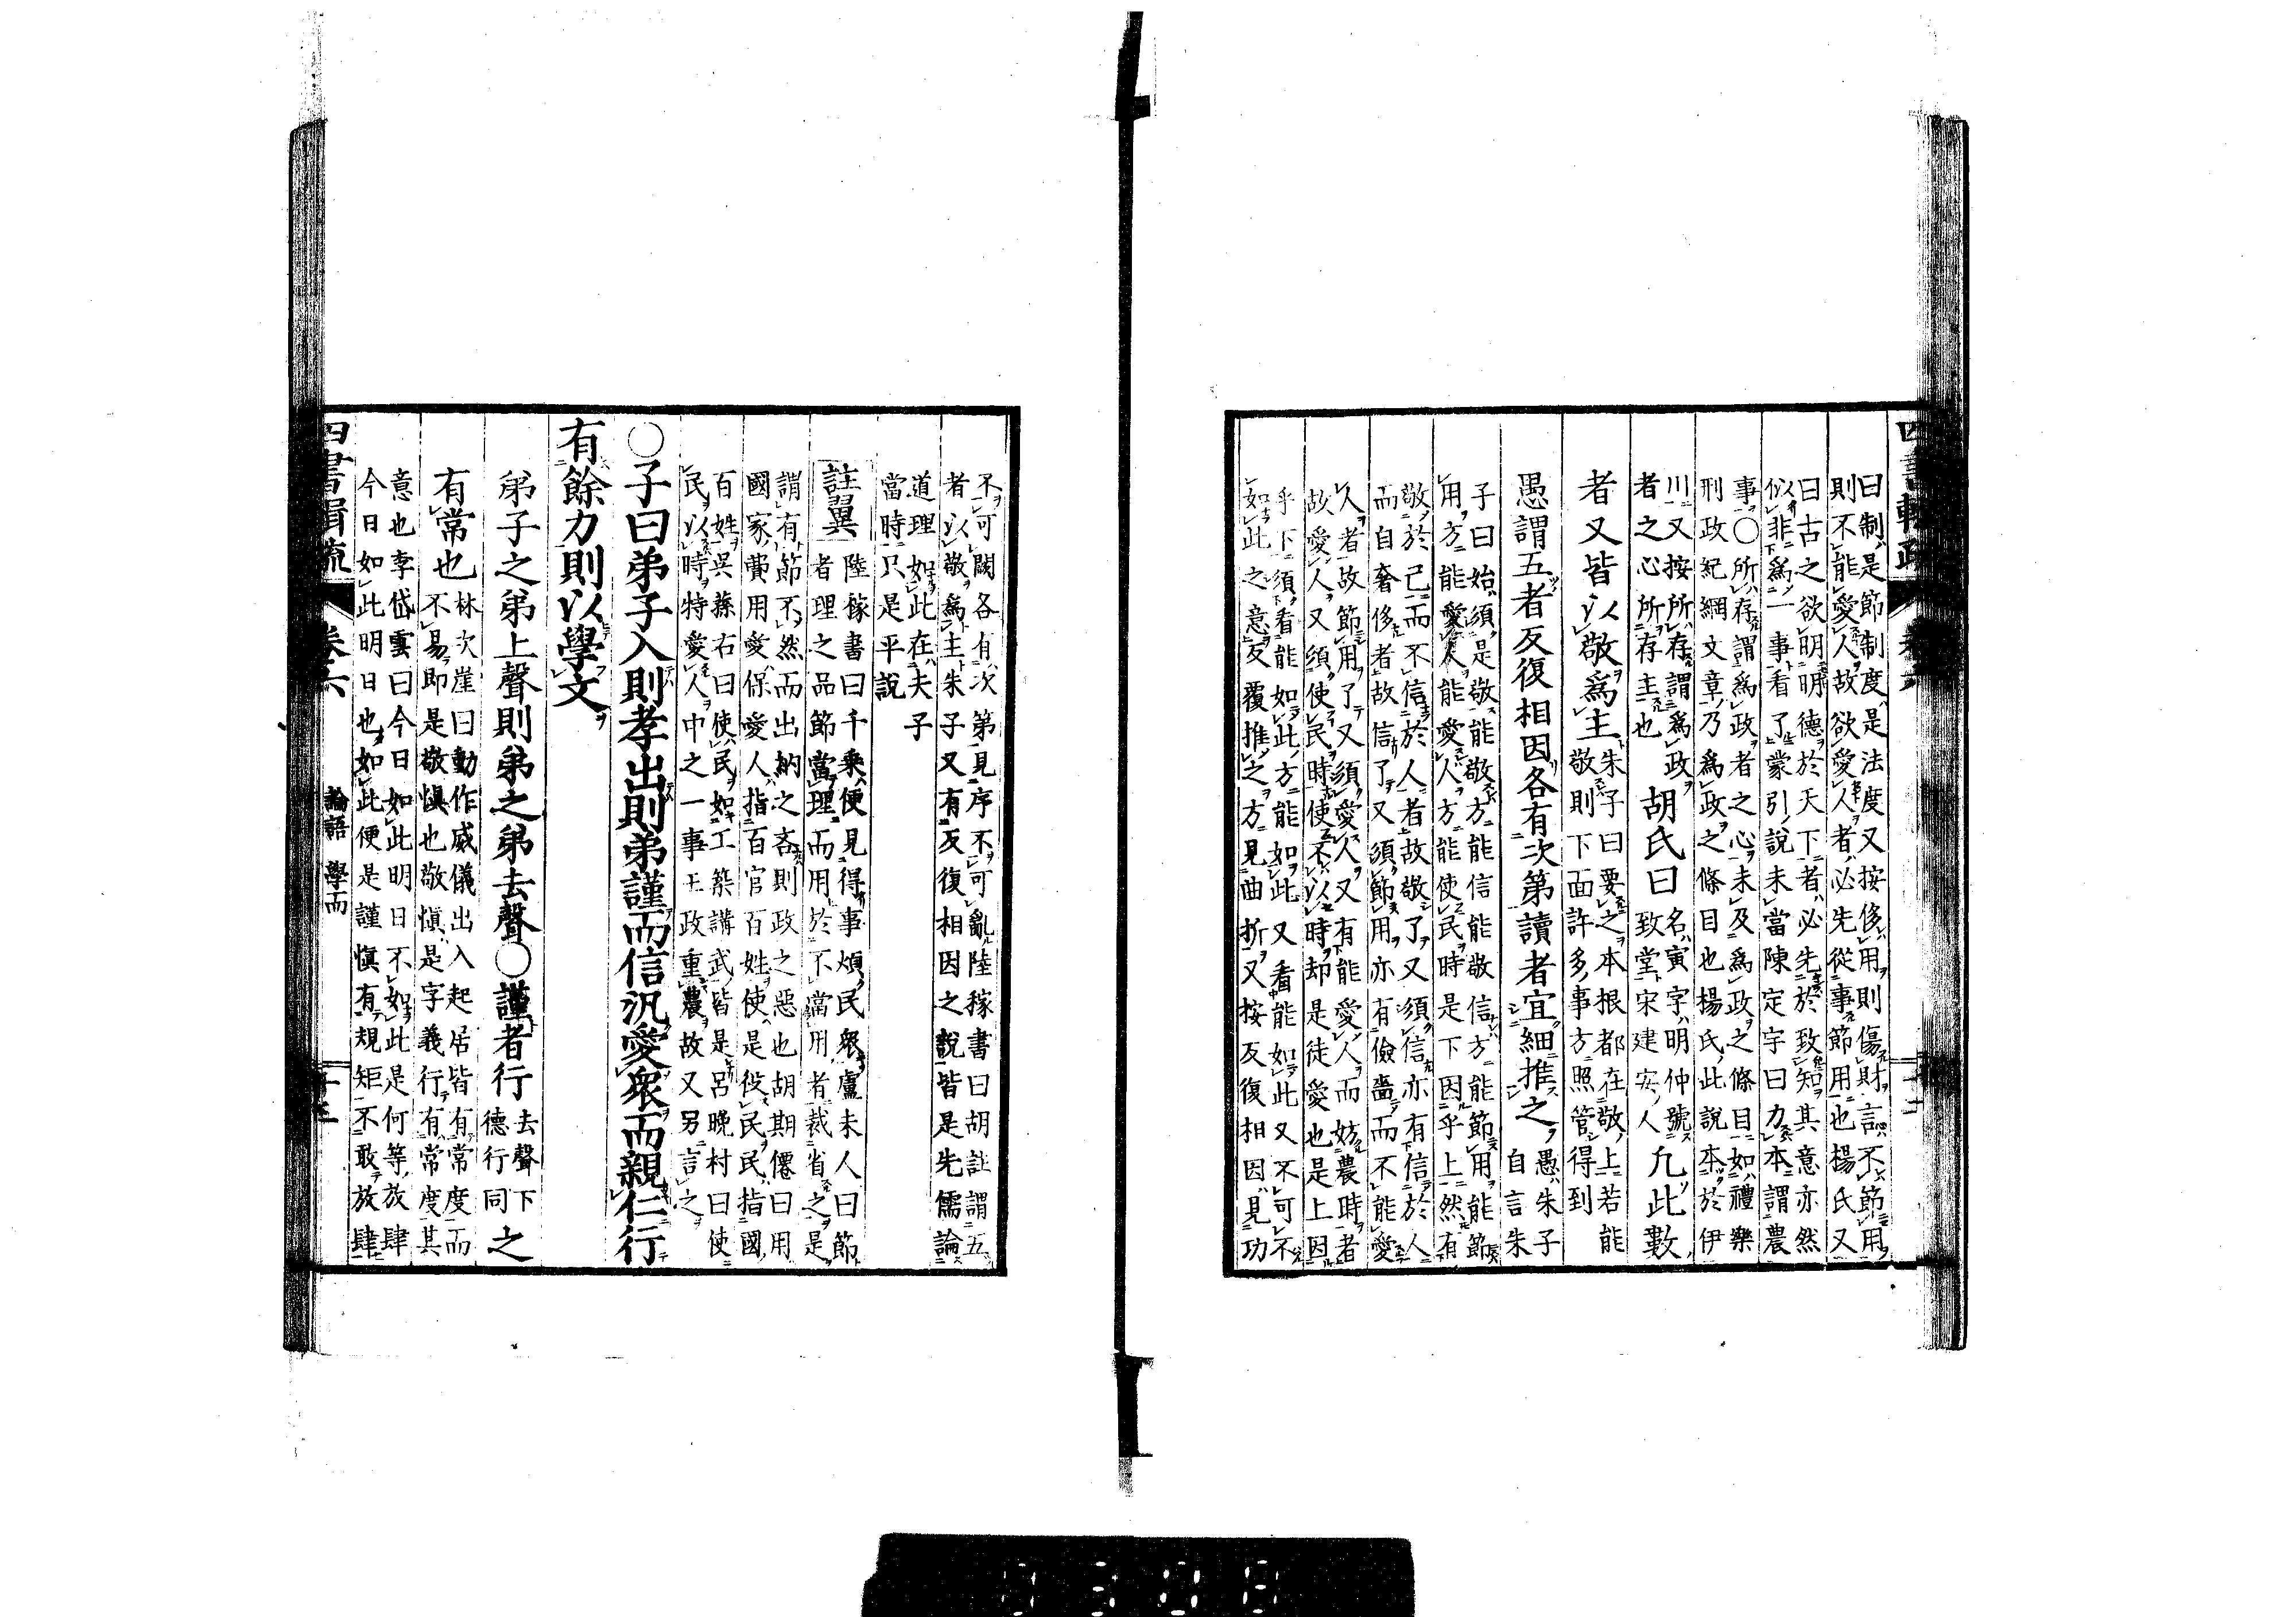 曰制是節制度是法度又按侈用則傷財言不節用
則不能愛人故欲愛人者必先從事節用也楊氏又
曰古之欲明明德於天下者必先於致知其意亦然
似非爲一事看了蒙引說未當陳定宇曰力本謂農
事○所存謂爲政者之心未及爲政之條目如禮樂
刑政紀綱文章乃爲政之條目也楊氏此說本於伊
川又按所存謂爲政
者之心所存主也
胡氏曰
名寅字明仲號
致堂宋建安人
凡此數
者又皆以敬爲主
朱子曰要之本根都在敬上若能
敬則下面許多事方照管得到
愚謂五者反復相因各有次第讀者宜細推之
愚朱子
自言朱
子曰始須是敬能敬方能信能敬信方能節用能節
用方能愛人能愛人方能使民時是下因乎上然有
敬於己而不信於人者故敬了又須信亦有信於人
而自奢侈者故信了又須節用亦有儉嗇而不能愛
人者故節用了又須愛人又有能愛人而妨農時者
故愛人又須使民時使不以時却是徒愛也是上因
乎下須看能如此方能如此又看能如此又不可不
如此之意反覆推之方見曲折又按反復相因見功
不可闕各有次第見序不可亂陸稼書曰胡註謂五
者以敬爲主朱子又有反復相因之說皆是先儒論
道理如此在夫子
當時只是平說
註翼
陸稼書曰千乘便見得事煩民衆盧未人曰節
者理之品節當理而用於不當用者裁省之是
謂有節不然而出納之吝則政之惡也胡期僊曰用
國家費用愛保愛人指百官百姓使是役民民指國
百姓吳蓀右曰使民如工築講武皆是呂晚村曰使
民以時特愛人中之一事王政重農故又另言之
○子曰弟子入則孝出則弟謹而信汎愛衆而親仁行
有餘力則以學文
弟子之弟上聲則弟之弟去聲○謹者行
去聲下
德行同
之
有常也
林次崖曰動作威儀出入起居皆有常度而
不易即是敬愼也敬愼是字義行有常度其
意也李岱雲曰今日如此明日不如此是何等放肆
今日如此明日也如此便是謹愼有規矩不敢放肆
卷六
論語 學而